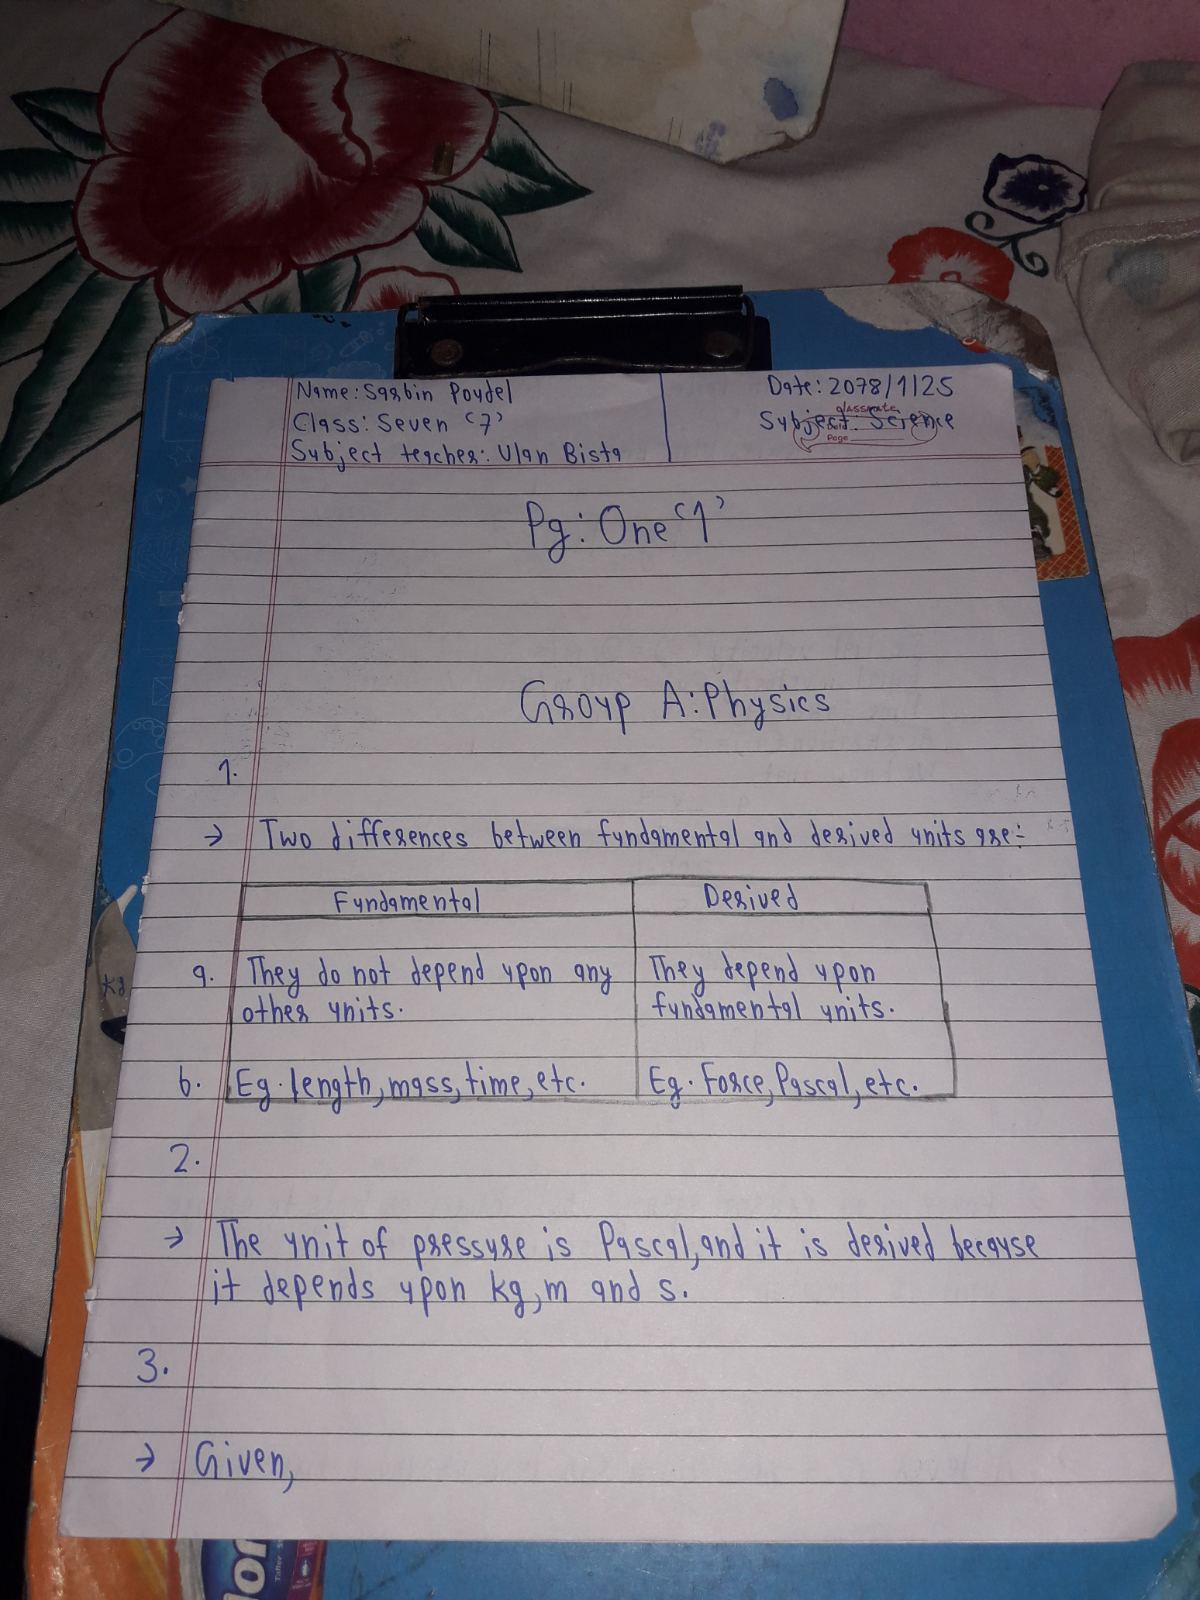 Name: Sarbin Poudel
Class: Seven '7'
Subject teacher: Ulan Bista
Date: 2078/1/25
Subject: Science
classmate
Page
Pg: One '1'
Group A: Physics
1.
→ Two differences between fundamental and derived units are:-
Fundamental
Derived
a. They do not depend upon any
other units.
They depend upon
fundamental units.
b. Eg. length, mass, time, etc.
Eg. Force, Pascal, etc.
2.
→ The unit of pressure is Pascal, and it is derived because
it depends upon kg, m and s.
3.
→ Given,